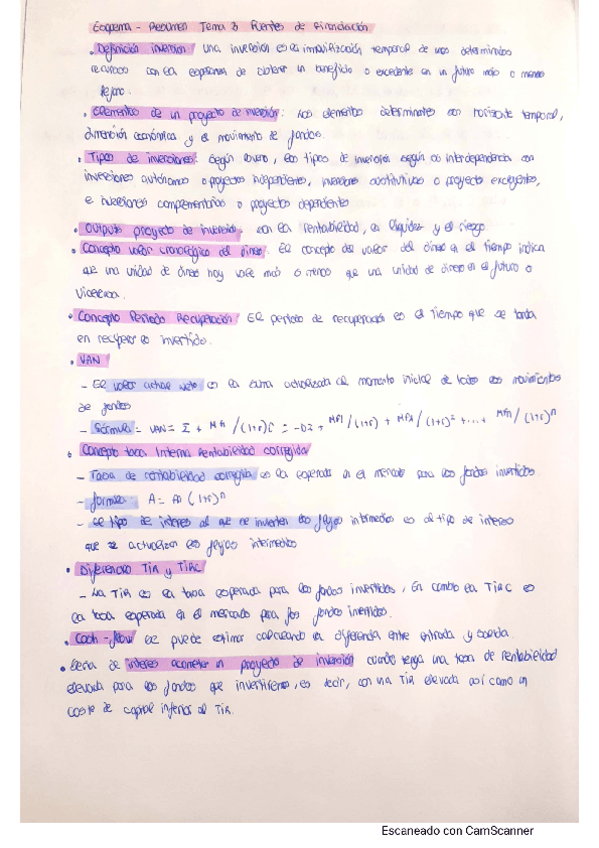 Esquema - Resumen Tema 3 Fuentes de Financiación
• Definición inversión: Una inversión es la inmovilización temporal de unos determinados
recursos con la esperanza de obtener un beneficio o excedentes en un futuro más o menos
lejano.
• Elementos de un proyecto de inversión: los elementos determinantes son horizonte temporal,
dimensión económica y el movimiento de fondos.
• Tipos de inversiones: Según, los tipos de inversión según su interdependencia son
inversiones autónomas o proyectos independientes, inversiones sustitutivas o proyecto excluyentes,
e inversiones complementarias o proyectos dependientes
• Outputs proyecto de inversión: son la rentabilidad, la liquidez y el riesgo
• Concepto valor cronológico del dinero: El concepto del valor del dinero en el tiempo indica
que una unidad de dinero hoy vale más o menos que una unidad de dinero en el futuro o
viceversa.
• Concepto Período Recuperación: El período de recuperación es el tiempo que se tarda
en recuperar lo invertido.
• VAN
- El valor actual neto es la suma actualizada al momento inicial de todos los movimientos
de fondos
- Fórmula = VAN = Σ + /(1+r) = - + MF1 /(1+r) + MF2 /(1+r)² + ... + MFn /(1+r)ⁿ
• Concepto tasa Interna Rentabilidad corregida
- Tasa de rentabilidad corregida es la esperada en el mercado para los fondos invertidos.
- formula: A = (1+r)ⁿ
- El tipo de interés al que se invierten los flujos intermedios es al tipo de interés
que se actualizan los flujos intermedios
• Diferencias TIR y TIRC
- La TIR es la tasa esperada para los fondos invertidos, En cambio la TIRC es
la tasa esperada en el mercado para los fondos invertidos.
• Cash-flow se puede estimar calculando la diferencia entre entrada y salida.
• Sería de interés acometer un proyecto de inversión cuando tenga una tasa de rentabilidad
elevada para los fondos que invertiremos, es decir, con una TIR elevada así como un
coste de capital inferior al TIR.
Escaneado con CamScanner